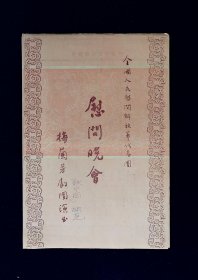 全國人民慰問解放軍代表團
慰問晚會
梅蘭芳劇團演出